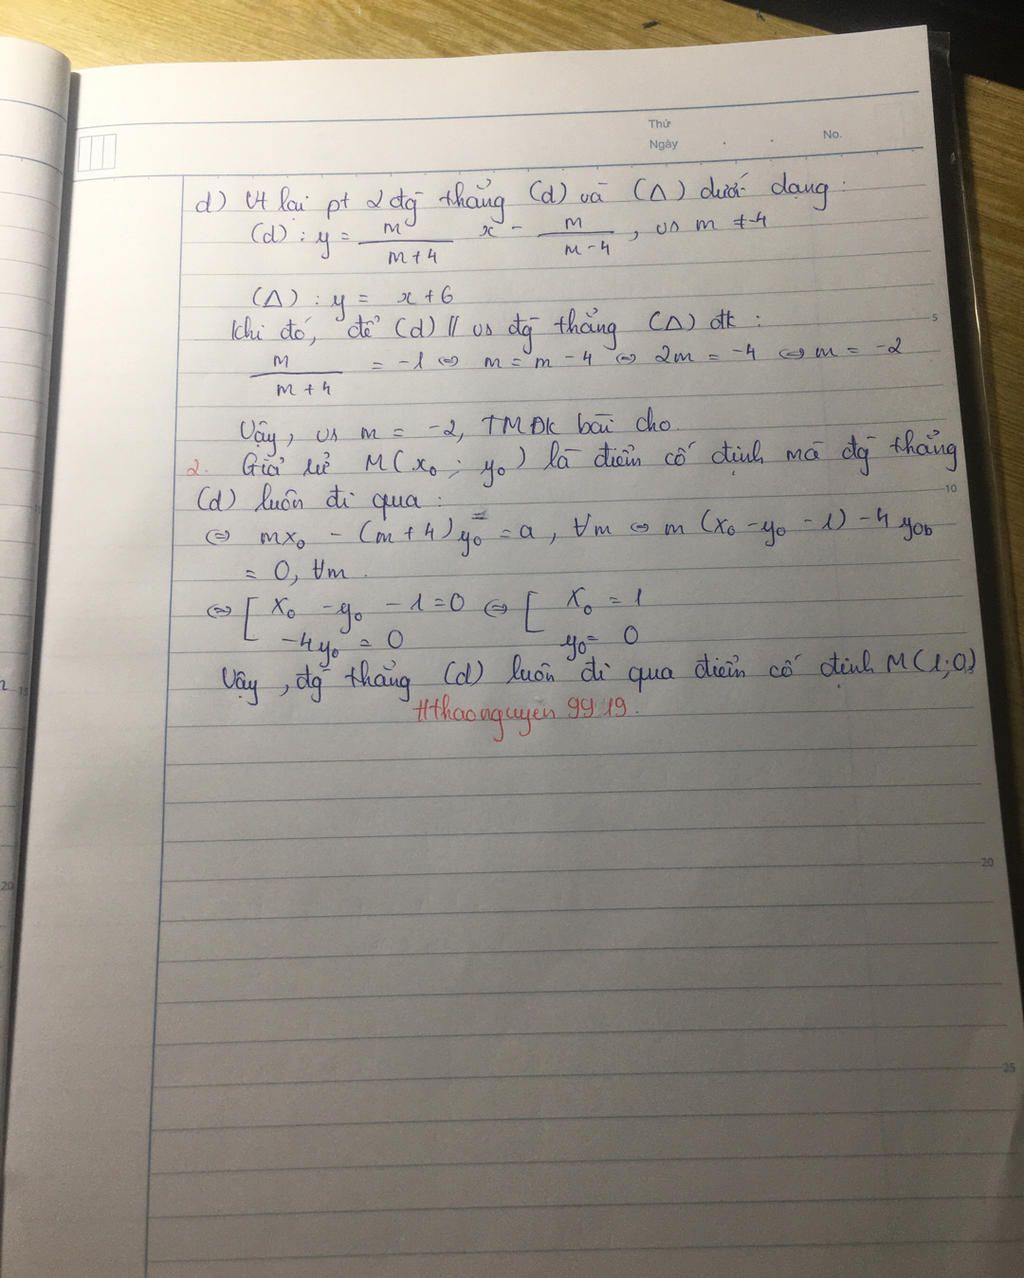 Thứ
Ngày . . No.
d) Vt lại pt 2 đg̃ thẳng (d) và (Δ) dưới dạng:
(d): y = m/(m+4) x - m/(m-4), vs m ≠ -4
(Δ): y = x+6
Khi đó, để (d) // vs đg̃ thẳng (Δ) đk:
m/(m+4) = -1 ⇔ m = m - 4 ⇔ 2m = -4 ⇔ m = -2
Vậy, vs m = -2, TMĐK bài cho.
2. Giả sử M(x₀; y₀) là điểm cố định mà đg̃ thẳng
(d) luôn đi qua:
⇔ mx₀ - (m+4)y₀ = a, ∀m ⇔ m(x₀ - y₀ - 1) - 4y₀
= 0, ∀m.
⇔ [ x₀ - y₀ - 1 = 0 ⇔ [ x₀ = 1
-4y₀ = 0 y₀ = 0
Vậy, đg̃ thẳng (d) luôn đi qua điểm cố định M(1;0)
#thaonguyen 99 19.
5
10
15
20
25
20